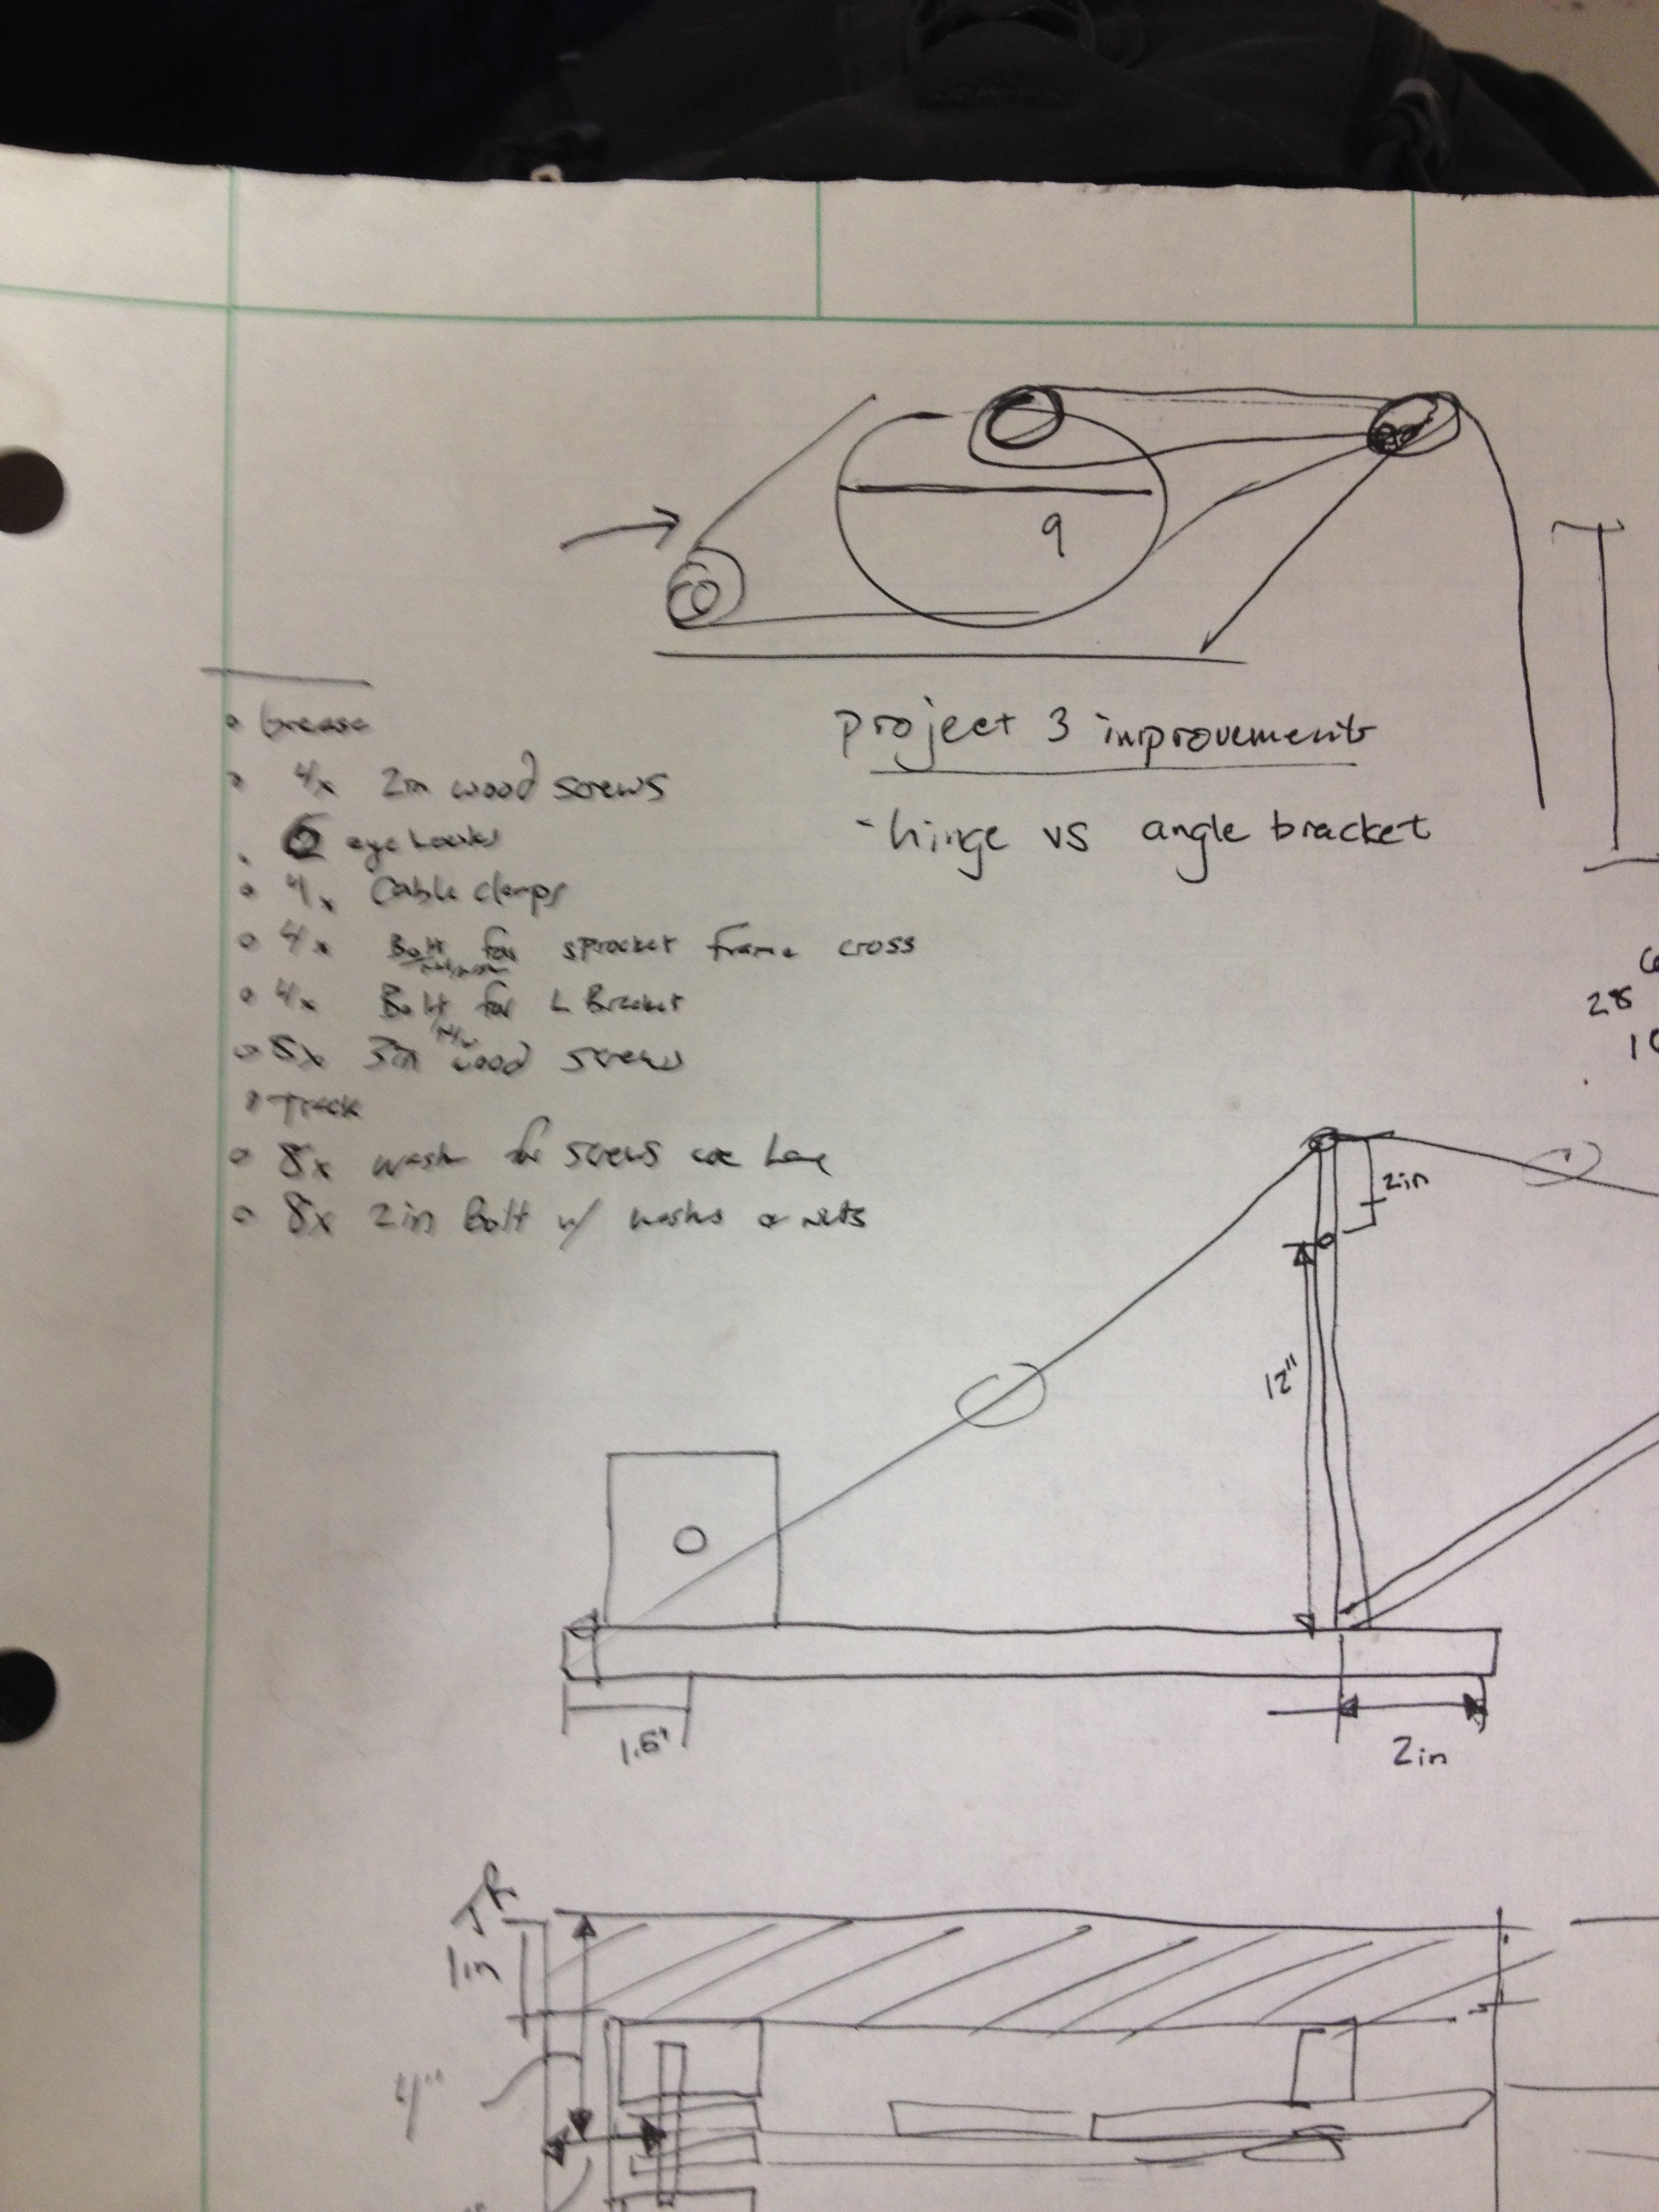 9
project 3 improvements
- hinge vs angle bracket
Grease
4x 2in wood screws
6 eye hooks
4x Cable clamps
4x Bolt for sprocket frame cross
4x Bolt for L Bracket
8x 3in wood screws
Track
8x wash for screws we have
8x 2in Bolt w/ washs & nuts
28
2in
12"
1.5"
2in
1in
4"